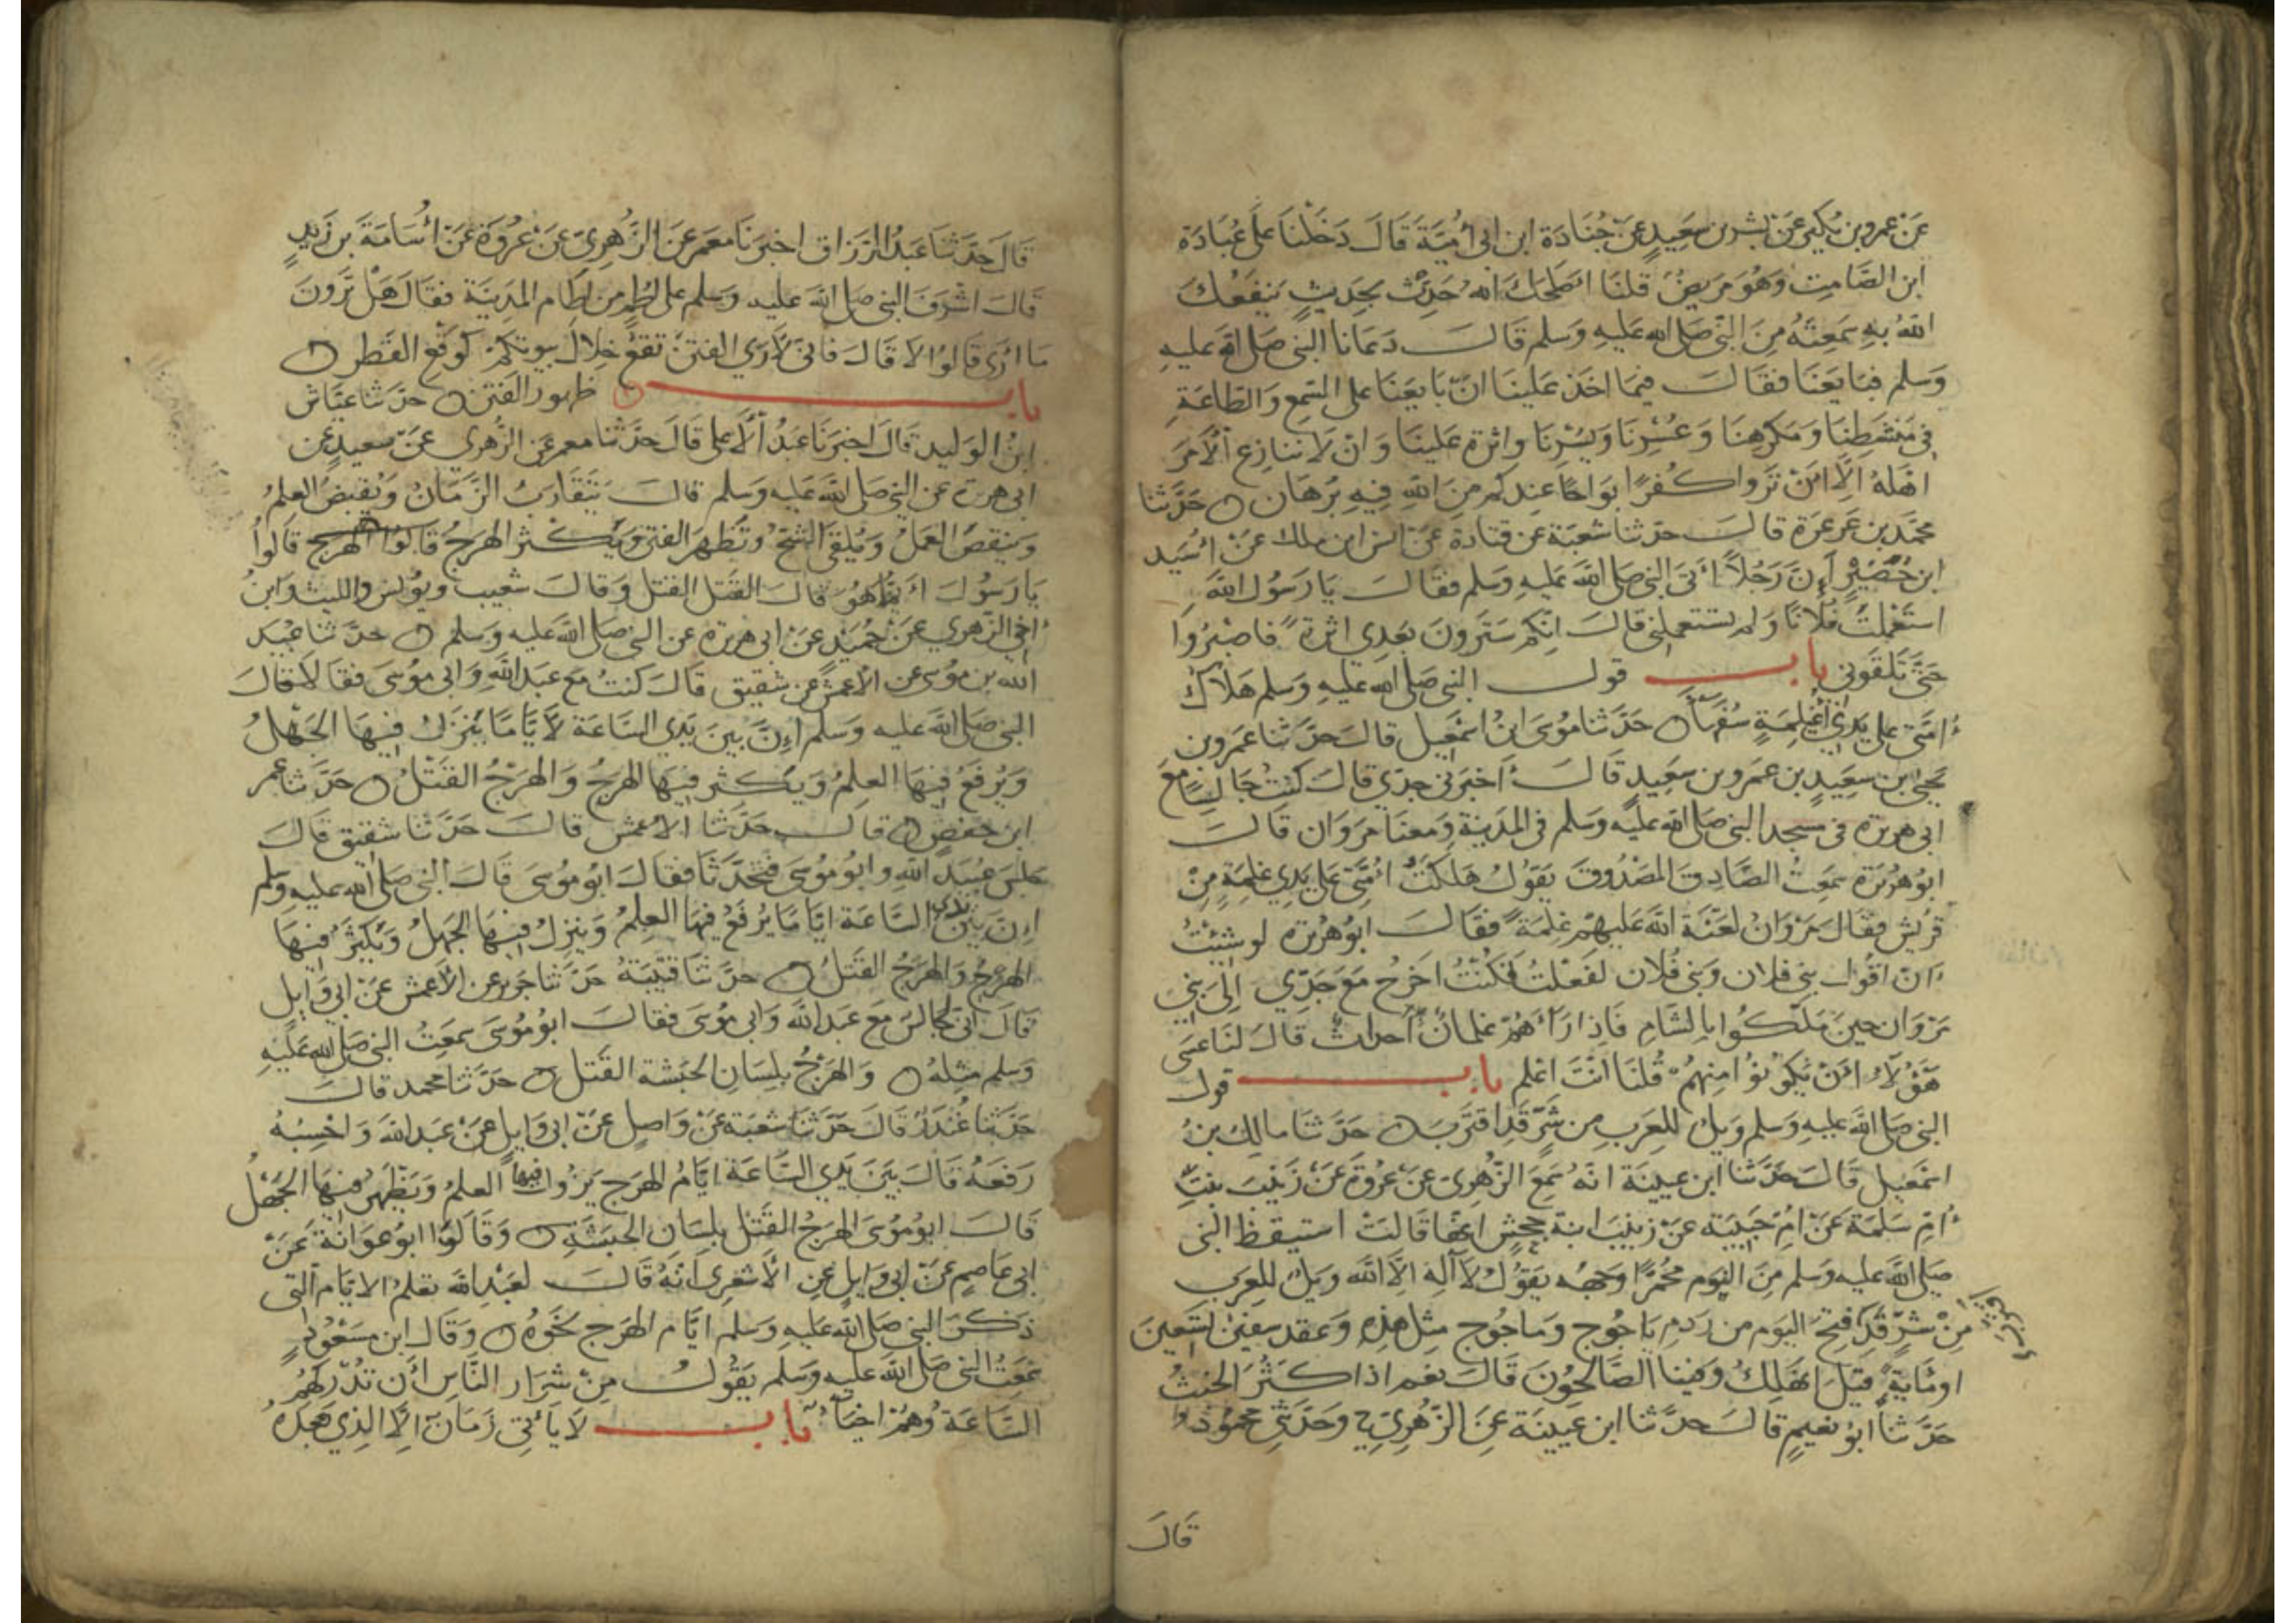 عَنْ عمرو بن بُكير عَنْ بشر بن سَعِيدٍ عَنْ جُنَادَة ابن ابى أُمَيَّة قَالَ دَخَلْنَا عَلَى عُبَادَة
ابن الصَّامِتِ وَهُوَ مَرِيضٌ قلنَا اصْلحَكَ الله حَدِّثْ بحَدِيثٍ يَنفَعُكَ
اللهُ بهِ سَمِعتَهُ مِنَ النَّبِّي صَلى الله عَليهِ وَسَلم قَالَ دَعَانا النبى صَلى الله عَليهِ
وَسَلم فبَايَعَنَا فقَالَ فيمَا اخَذ عَلينَا انْ بَايَعَنَا عَلى السَّمِع وَالطَّاعَةِ
فى مَنْشَطِنَا وَمَكرَهِنَا وَعُسْرِنَا وَيُسْرِنَا واثرة عَلينَا وَانْ لَا ننَازِع الْأمرَ
اهْلهُ الَّا انْ تَرَوا كُفرًا بَوَاحًا عِندكم مِنَ اللهِ فِيهِ بُرْهَان ۞ حَدَّثنا
محمَّد بن عَرعَرَة قالَ حدثنا شعبَة عن قتادة عَنْ انس ابن ملك عَنْ اُسَيد
ابن حُضَيْرٍ اَنَّ رَجُلاً اَتَى النبى صَلى اللهَ عَليهِ وَسَلم فقَالَ يَا رَسُول اللهَ
استَعْمَلتَ فُلَانًا وَلم تستعملنى قالَ انّكم سَتَرونَ بَعدِي اثرة فاصْبُرُوا
حَتَّى تَلقَونى بابــ قول النبى صَلى الله عَليهِ وَسَلم هَلَاكُ
اُمَّتى على يَدَيْ اُغَيْلِمَةٍ سُفَهَآء ۞ حَدَّثنا مُوسَى ابنُ اسْمعِيل قالَ حَدَّثنا عَمرو بن
يَحيى بن سَعِيدِ بن عَمرو بن سَعِيدٍ قَالَ اَخبَرنى جدّي قالَ كنتُ جَالِسًا مَعَ
ابى هريرة فى مسجد النبى صَلى الله عَليه وَسَلم فى المَدينَةِ وَمعنَا مَروَان قَالَ
ابُو هُرَيْرَة سَمِعتُ الصَّادِقَ المَصْدُوقَ يَقوُلُ هَلكَتُ اُمّتى عَلى يَدي غلِمَةٍ مِنْ
قرَيْش فقَالَ مَرْوَانُ لَعْنَة اللهَ عَليهِمْ غِلمَةً فقَالَ ابُو هُريْرة لو شئِتُ
اَنْ اقُولَ بنى فلان وَبَنى فُلَان لفَعَلتُ فَكنْتُ اخرُج مَعَ جَدِّي اِلىَ بَنِي
مَرْوَان حِينَ مَلَكُوا بالشَّامِ فَاِذا رَآهُمْ غلمانًا اَحداثًا قالَ لنَا عَسَى
هَؤُلآءِ اَنْ يَكونُوا مِنهُمْ قُلنَا انْتَ اعْلم بابــ قول
النبى صَلى اللهَ عَليهِ وَسَلم وَيلٌ للعَرَبِ مِن شَرٍّ قَد اقتَرَبَ ۞ حَدَّثنَا مَالِك بنُ
اسْمعَيل قَالَ حَدَّثنا ابن عيينَة انهُ سَمِعَ الزُّهْرِيَ عَنْ عُرْوَةَ عَنْ زَيْنَبَ بنتِ
اُمِّ سَلَمَة عَنْ امِّ حَبِيبَة عَنْ زينبَ ابنة جَحشٍ انها قَالَتْ استيقظ النبى
صَلى اللهَ عَليه وَسَلم مِنَ النوَّمِ محُمَرًا وَجهه يَقوُلُ لَآ اِلهَ الَّا الله وَيلٌ للعِرَب
مِنْ شَرٍّ قَد اقتَرَبَ فتِحَ اليَوم من رَدم يَاجُوج وَمَاجُوج مِثل هذِهِ وَعقد سفيَن تسعينَ
اومائة قيلَ انَهلِكُ وَفينا الصَّالحُونَ قَالَ نعَم اذا كَثُرَ الخبثُ
حَدَّثنا ابُو نعيمٍ قالَ حدثنا ابن عيينَة عَنِ الزُّهْرِيّ ح وحَدَّثنى محمُود
قَالَ
قالَ حَدَّثنَا عَبْدُ الرزاق اخبرنَا معمَر عَن الزُّهرِيّ عَنْ عُرْوَة عَنْ اُسَامَةَ بن زَيدٍ
قالَ اشرفَ النبى صَلى اللهَ عَليه وَسَلم عَلى اُطُمٍ من اطَام المَدِينَة فقالَ هَلْ تَرَونَ
مَا ارَى قَالوُا لا قَالَ فَانّى لَارَى الفتنَ تَقَعُ خِلَالَ بيوتكمْ كَوَقع القَطر ۞
بابــ ظهور الفتن ۞ حَدثنا عيَّاش
ابنُ الوَليد قَالَ اخبرَنَا عَبْدُ الْاَعلى قَالَ حَدَّثنَا معمر عَن الزُّهري عَنْ سَعيدٍ عَن
ابى هريرة عن النبى صَلى اللهَ عَليه وَسَلم قالَ يَتَقَارَبُ الزَّمَانُ وَيُقبَضُ العِلمُ
وَينقصُ العَملُ وَيُلقَى الشحُّ وَتَظْهَر الفتن وَيَكثر الهرَجُ قَالوُا الهرج قَالوُا
يَا رَسُولَ اَيُّما هُوَ قالَ القَتلُ القتل وَقالَ شعيب ويوُنس والليث وَابنُ
اخي الزُّهري عَنْ حُمَيد عَنْ ابى هريرة عن النبى صَلى اللهَ عَليه وَسَلم ۞ حَدَّثنا عُبيد
الله بن موُسَى عن الأعمش عن شقيق قالَ كنتُ مَع عَبد اللهِ وَابى موُسَى فقالا قالَ
النبى صَلى اللهَ عَليه وَسَلم اِنَّ بَينَ يَدَي السَّاعَة لَأيَّامًا يَنْزِلُ فيهَا الجَهْلُ
وَيُرفَعُ فيهَا العِلمُ وَيَكثر فيهَا الهرجُ وَالهَرجُ القَتلُ ۞ حَدَّثنا عمر
ابن حَفصٍ ۞ قالَ حَدَّثنا الأعمش قالَ حَدَّثنا شقيق قَالَ
جَلسَ عَبْد اللهِ وابُو موُسَى فتحَدَّثا فقالَ ابُو موُسَى قَالَ النبى صَلى الله عَليه وسَلم
اِنَّ بَينَ يدي السَّاعَة ايَّامًا يُرفَعُ فيهَا العِلمُ وَينزِلُ فيهَا الجَهلُ وَيَكثُرُ فيهَا
الهرجُ وَالهَرجُ القَتلُ ۞ حدَّثنَا قتيْبَة حَدَّثنا جَرير عن الأعمش عَنْ ابي وَايل
قَالَ انّى لجَالس مَعَ عَبد اللهَ وَابى موُسَى فقالَ ابُو موُسَى سَمعَتُ النبى صَلى الله عَليهِ
وَسَلم مثِله ۞ وَالهَرْجُ بلِسَانِ الحَبَشة القَتل ۞ حَدَّثنا محمد قَالَ
حَدَّثنا غُندَرٌ قَالَ حَدَّثنَا شعبَة عَنْ وَاصلٍ عَنْ ابى وَايل عَنْ عَبد اللهَ وَاحْسِبُهُ
رَفعَهُ قَالَ بَيْنَ يَدي السَّاعَة ايَّامُ الهَرج يَزُولُ فيهَا العلمُ وَيَظْهرُ فيهَا الجَهْلُ
قَالَ ابوُ موُسَى الهَرجُ القَتلُ بلِسَان الحبَشَةِ ۞ وَقَالَ ابوُ عوَانَة عَنْ
ابى عَاصِمٍ عَنْ ابى وَايل عَنِ الأشعَرى اَنَّهُ قَالَ لعَبْد الله تعْلمُ الايَّام التى
ذَكر النبى صَلى اللهَ عَليه وَسَلم ايَّام الهَرج نحَوَهُ ۞ وَقَالَ ابن مَسْعُودٍ
سَمعتُ النبى صَلى اللهَ عَليه وَسَلم يَقُولُ مِنْ شرَار النَّاسِ اَن تُدْركهُمُ
السَّاعَة وَهُمْ احيَآءٌ بابــ لَا يَأتى زَمَان اِلَّا الذِي بَعْدَهُ